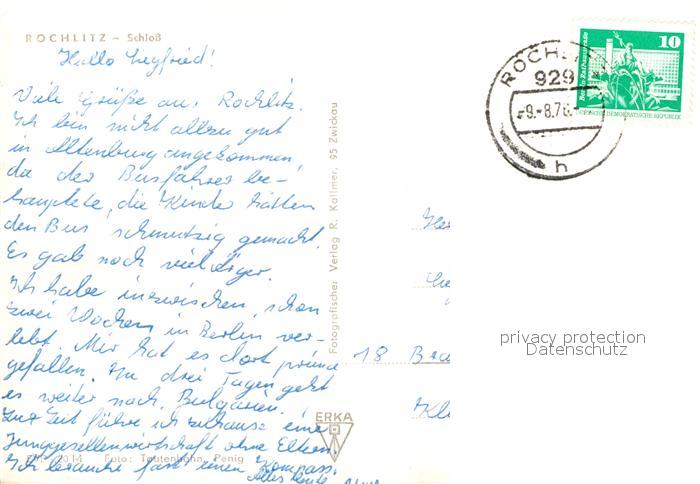 ROCHLITZ – Schloß
Hallo Siegfried!
Viele Grüße aus Rochlitz.
Ich bin nicht allzu gut
in Altenburg angekommen,
da der Busfahrer be-
hauptete, die Kinder hätten
den Bus schmutzig gemacht.
Es gab noch viel Ärger.
Ich habe inzwischen schon
zwei Wochen in Berlin ver-
lebt. Mir hat es dort prima
gefallen. In drei Tagen geht
es weiter nach Bulgarien.
Zur Zeit führe ich zuhause eine
Junggesellenwirtschaft ohne Eltern.
Ich brauche fast einen Kompass.
Alles Gute
Foto: Tautenhahn, Penig
Fotografischer Verlag R. Kallmer, 95 Zwickau
ERKA
ROCHLITZ
929
-9.-8.76.
h
10
DEUTSCHE DEMOKRATISCHE REPUBLIK
18
privacy protection
Datenschutz